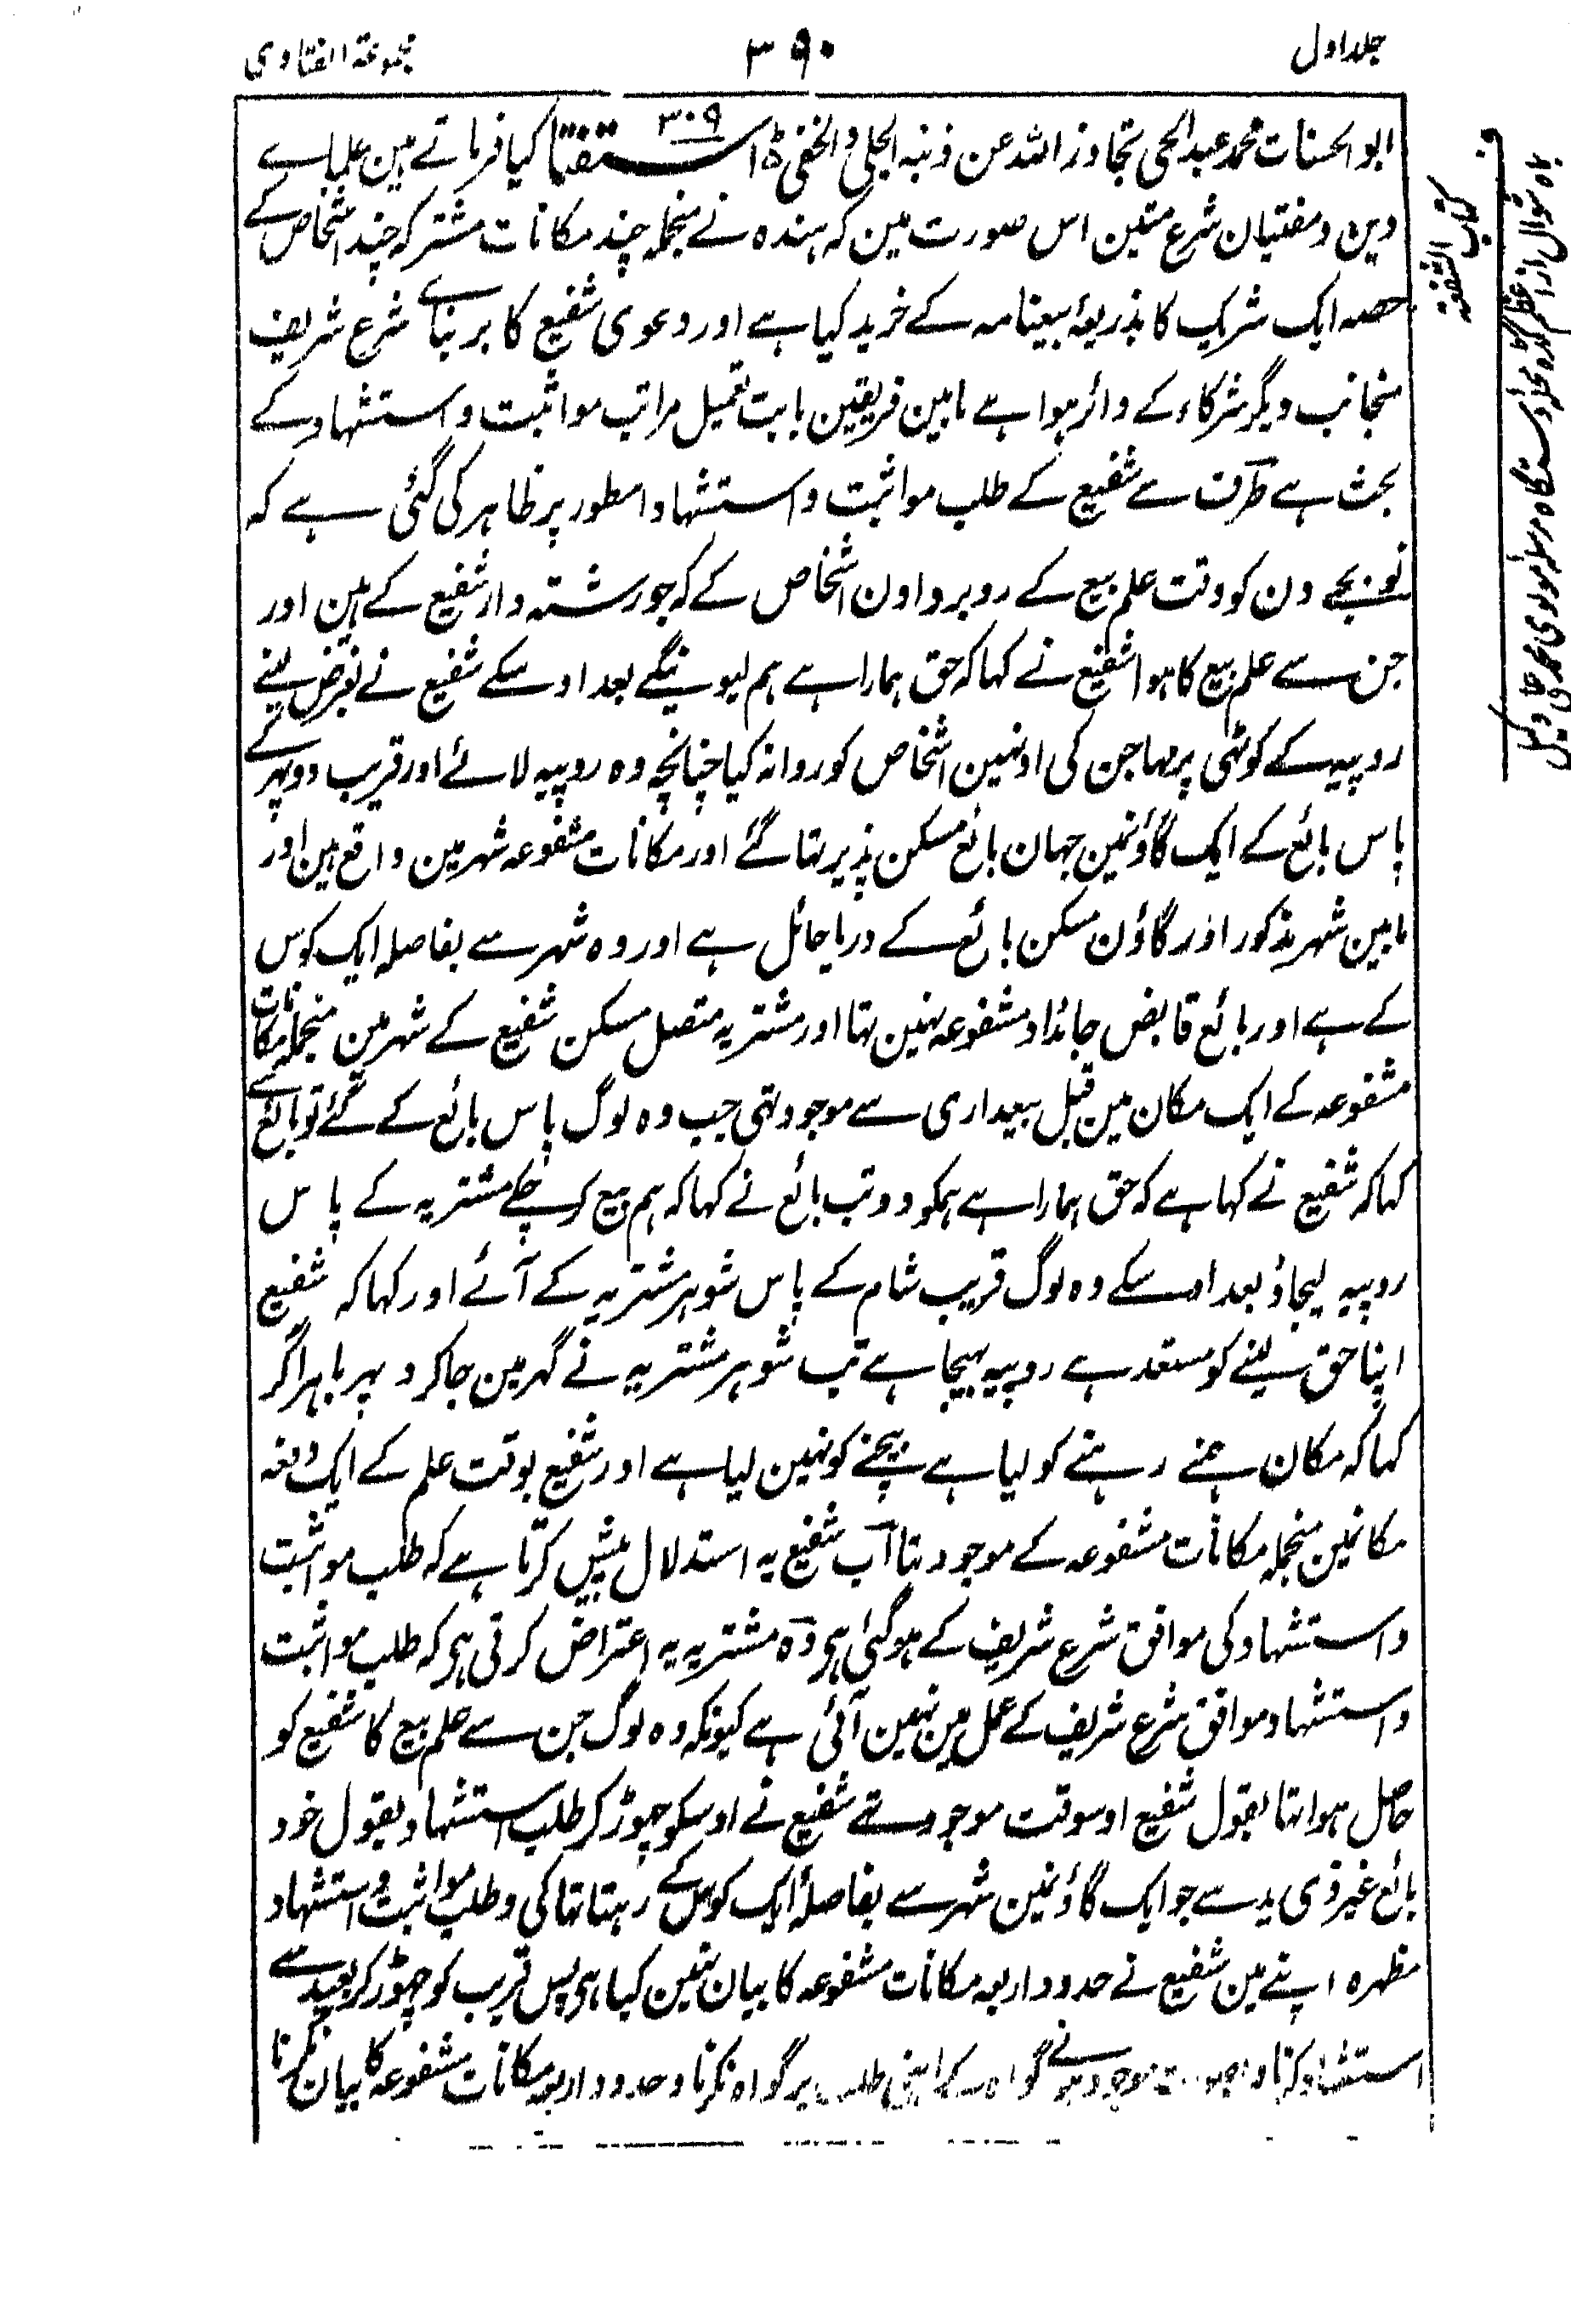 جلد اول
۳۹۰
مجموعۃ الفتاوی
ابو الحسنات محمد عبد الحی تجاوز اللہ عن ذنبہ الجلی و الخفی استفتا ۳۰۹ کیا فرماتے ہین علماے
دین و مفتیان شرع متین اس صورت مین کہ ہندہ نے منجملہ چند مکانات مشترکہ چند اشخاص کے
حصہ ایک شریک کا بذریعۂ بیعنامہ کے خرید کیا ہے اور دعوی شفیع کا بر بناے شرع شریف
منجانب دیگر شرکاء کے دائر ہوا ہے مابین فریقین بابت تعمیل مراتب مواثبت و استشہاد کے
بحث ہے طرف سے شفیع کے طلب مواثبت و استشہاد اسطور پر ظاہر کی گئی ہے کہ
نو بجے دن کو وقت علم بیع کے روبرو اون اشخاص کے کہ جو رشتہ دار شفیع کے ہین اور
جن سے علم بیع کا ہوا شفیع نے کہا کہ حق ہمارا ہے ہم لیوینگے بعد اوسکے شفیع نے بغرض لینے
روپیہ کے کوٹھی پر مہاجن کی اونہین اشخاص کو روانہ کیا چنانچہ وہ روپیہ لائے اور قریب دوپہر کے
پاس بائع کے ایک گاؤنمین جہان بائع مسکن پذیر تہا گئے اور مکانات مشفوعہ شہر مین واقع ہین اور
مابین شہر مذکور اور گاؤن مسکن بائع کے دریا حائل ہے اور وہ شہر سے بفاصلہ ایک کوس
کے ہے اور بائع قابض جائداد مشفوعہ نہین تہا اور مشتریہ متصل مسکن شفیع کے شہر مین منجملہ مکانات
مشفوعہ کے ایک مکان مین قبل بیعداری سے موجود تہی جب وہ لوگ پاس بائع کے گئے تو بائع سے
کہا کہ شفیع نے کہا ہے کہ حق ہمارا ہے ہمکو دو تب بائع نے کہا کہ ہم بیع کر چکے مشتریہ کے پاس
روپیہ لیجاؤ بعد اوسکے وہ لوگ قریب شام کے پاس شوہر مشتریہ کے آئے اور کہا کہ شفیع
اپنا حق لینے کو مستعد ہے روپیہ بہیجا ہے تب شوہر مشتریہ نے گہر مین جاکر و پہر باہر آکر
کہا کہ مکان ہمنے رہنے کو لیا ہے بیچنے کو نہین لیا ہے اور شفیع بوقت علم کے ایک دفعہ
مکانمین منجملہ مکانات مشفوعہ کے موجود تہا اب شفیع یہ استدلال پیش کرتا ہے کہ طلب مواثبت
و استشہاد کی موافق شرع شریف کے ہو گئی ہی وہ مشتریہ یہ اعتراض کرتی ہی کہ طلب مواثبت
و استشہاد موافق شرع شریف کے عمل مین نہین آئی ہے کیونکہ وہ لوگ جن سے علم بیع کا شفیع کو
حاصل ہوا تہا بقول شفیع اوسوقت موجود تہے شفیع نے اوسکو چہوڑ کر طلب استشہاد بقول خود
بائع غیر ذی ید سے جو ایک گاؤنمین شہر سے بفاصلہ ایک کوس کے رہتا تہا کی و طلب مواثبت و استشہاد
مظہرہ اپنے مین شفیع نے حدود اربعہ مکانات مشفوعہ کا بیان نہین کیا ہی پس قریب کو چہوڑ کر بعید سے
استشہاد کرنا و موجود ہونے گواہ کے اپنی طلب پر گواہ نکرنا و حدود اربعہ مکانات مشفوعہ کا بیان نکرنا
کتاب الشفعۃ